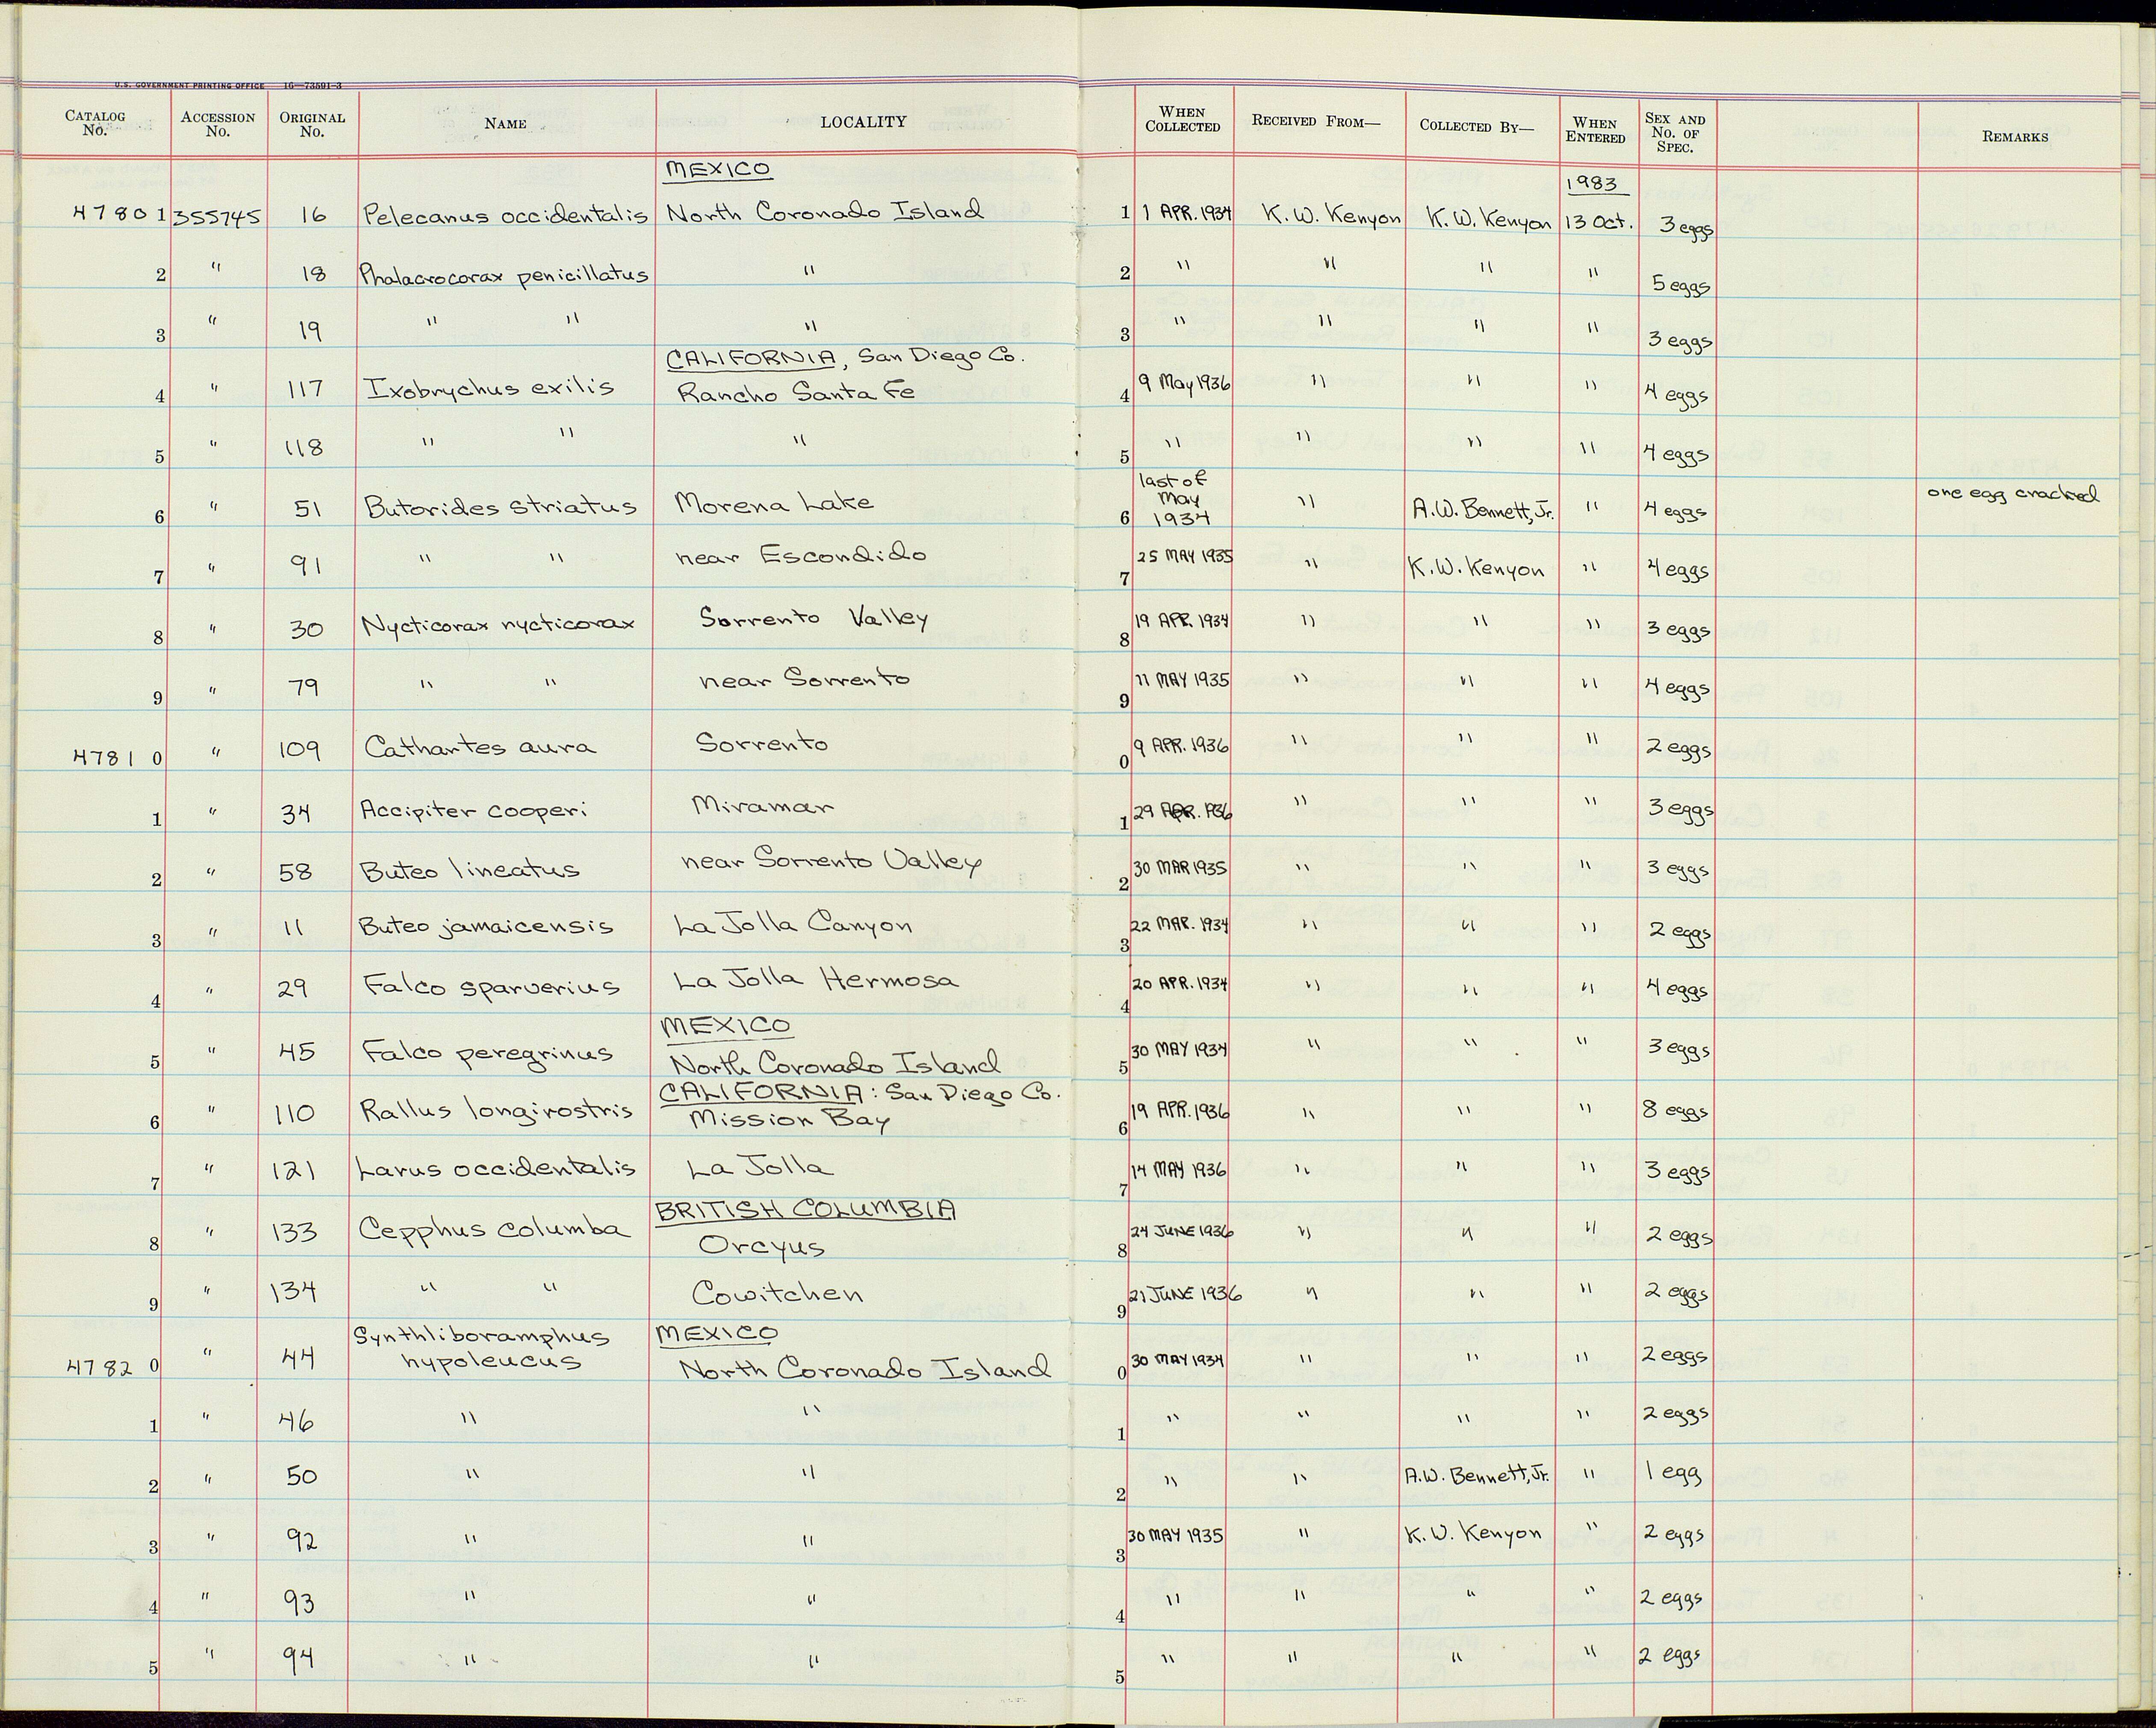 U.S. GOVERNMENT PRINTING OFFICE 16—73591-3
CATALOG No. ACCESSION No. ORIGINAL No. NAME LOCALITY WHEN COLLECTED RECEIVED FROM— COLLECTED BY— WHEN ENTERED SEX AND No. OF SPEC. REMARKS
MEXICO 1983
47801 355745 16 Pelecanus occidentalis North Coronado Island 1 1 APR. 1934 K. W. Kenyon K. W. Kenyon 13 Oct. 3 eggs
2 " 18 Phalacrocorax penicillatus " 2 " " " " 5 eggs
3 " 19 " " " 3 " " " " 3 eggs
CALIFORNIA, San Diego Co.
4 " 117 Ixobrychus exilis Rancho Santa Fe 4 9 May 1936 " " " 4 eggs
5 " 118 " " " 5 " " " " 4 eggs
6 " 51 Butorides striatus Morena Lake 6 last of May 1934 " A.W. Bennett, Jr. " 4 eggs one egg cracked
7 " 91 " " near Escondido 7 25 MAY 1935 " K.W. Kenyon " 4 eggs
8 " 30 Nycticorax nycticorax Sorrento Valley 8 19 APR. 1934 " " " 3 eggs
9 " 79 " " near Sorrento 9 11 MAY 1935 " " " 4 eggs
4781 0 " 109 Cathartes aura Sorrento 0 9 APR. 1936 " " " 2 eggs
1 " 34 Accipiter cooperi Miramar 1 29 APR. 1936 " " " 3 eggs
2 " 58 Buteo lineatus near Sorrento Valley 2 30 MAR 1935 " " " 3 eggs
3 " 11 Buteo jamaicensis La Jolla Canyon 3 22 MAR. 1934 " " " 2 eggs
4 " 29 Falco sparverius La Jolla Hermosa 4 20 APR. 1934 " " " 4 eggs
MEXICO
5 " 45 Falco peregrinus North Coronado Island 5 30 MAY 1934 " " " 3 eggs
CALIFORNIA: San Diego Co.
6 " 110 Rallus longirostris Mission Bay 6 19 APR. 1936 " " " 8 eggs
7 " 121 Larus occidentalis La Jolla 7 14 MAY 1936 " " " 3 eggs
BRITISH COLUMBIA
8 " 133 Cepphus columba Orcyus 8 24 JUNE 1936 " " " 2 eggs
9 " 134 " " Cowitchen 9 21 JUNE 1936 " " " 2 eggs
MEXICO
4782 0 " 44 Synthliboramphus hypoleucus North Coronado Island 0 30 MAY 1934 " " " 2 eggs
1 " 46 " " 1 " " " " 2 eggs
2 " 50 " " 2 " " A.W. Bennett, Jr. " 1 egg
3 " 92 " " 3 30 MAY 1935 " K. W. Kenyon " 2 eggs
4 " 93 " " 4 " " " " 2 eggs
5 " 94 " " 5 " " " " 2 eggs